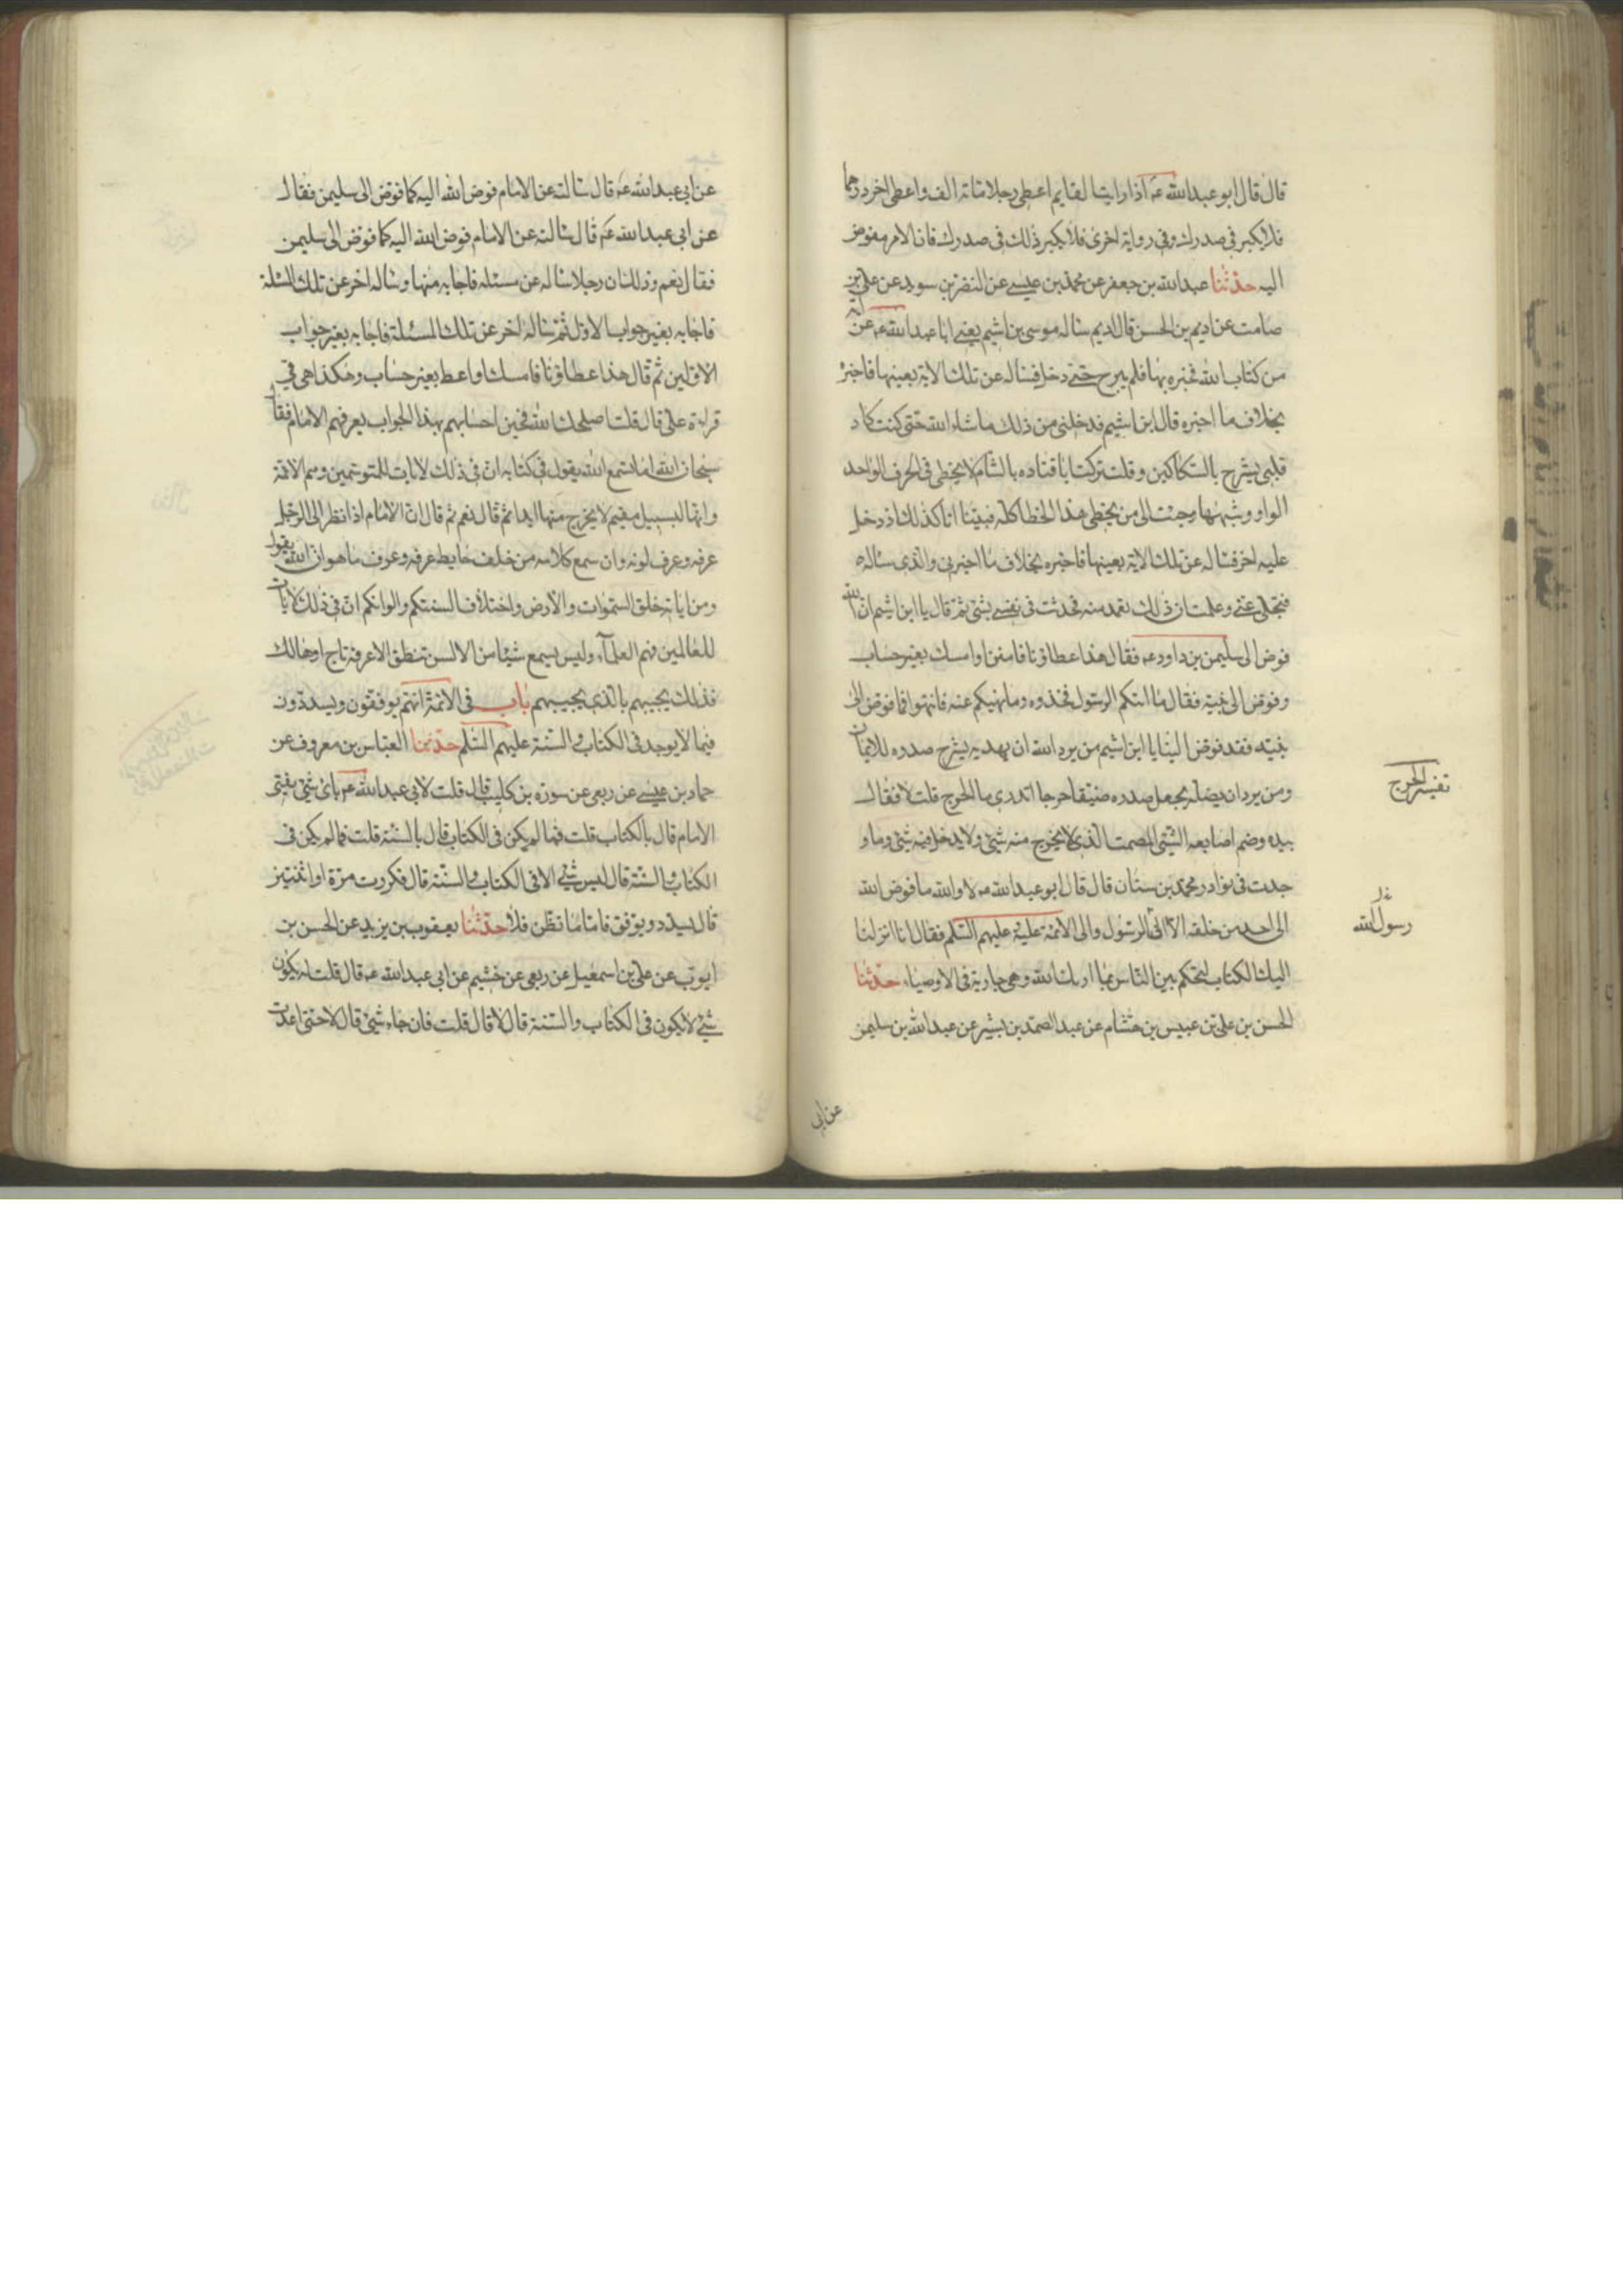 قال قال ابو عبدالله عه اذا رايت القايم اعطى رجلا مائة الف واعطى اخر درهما
فلا يكبر فى صدرك وفى رواية اخرى فلا يكبر ذلك فى صدرك فان الامر مفوض
اليه حدثنا عبدالله بن جعفر عن محمد بن عيسى عن النضر بن سويد عن على بن
صامت عن اديم بن الحسن قال اديم ساله موسى بن اشيم يعنى ابا عبدالله عه عن اية
من كتاب الله فخبره بها فلم يبرح حتى دخل فساله عن تلك الاية بعينها فاخبره
بخلاف ما اخبره قال ابن اشيم فدخلنى من ذلك ماشاء الله حتى كنت كاد
قلبى يشرح بالسكاكين وقلت تركت ابا قتاده بالشام لا يخطى فى الحرف الواحد
الواو وشبهها وجئت الى من يخطى هذا الخطا كله فبينا انا كذلك اذ دخل
عليه اخر فساله عن تلك الاية بعينها فاخبره بخلاف ما اخبرنى والذى ساله
فتجلى عنى وعلمت ان ذلك تعمد منه فحدثت فى نفسى بشئ ثم قال يا ابن اشيم ان الله
فوض الى سليمن بن داود عه فقال هذا عطاؤنا فامنن او امسك بغير حساب
وفوض الى نبيه فقال ما اتيكم الرسول فخذوه وما نهيكم عنه فانتهوا فما فوض الى
نبيه فقد فوض الينا يا ابن اشيم من يرد الله ان يهديه يشرح صدره للايمان
ومن يرد ان يضله يجعل صدره ضيقا حرجا اتدرى ما الحرج قلت لا فقال
بيده وضم اصابعه الشئ المصمت الذى لا يخرج منه شئ ولا يدخل فيه شئ وما و
جدت فى نوادر محمد بن سنان قال قال ابو عبدالله عه لا والله ما فوض الله
الى احد من خلقه الا الى الرسول والى الائمة عليه عليهم السلم فقال انا انزلنا
اليك الكتاب لتحكم بين الناس بما اريك الله وهى جارية فى الاوصياء حدثنا
الحسن بن على بن عبيس بن هشام عن عبد الصمد بن بشير عن عبدالله بن سليمن
تفسير الحرج
رسول الله
عن ابى
عن ابى عبدالله عه قال سالته عن الامام فوض الله اليه كما فوض الى سليمن فقال
عن ابى عبدالله عه قال سالته عن الامام فوض الله اليه كما فوض الى سليمن
فقال نعم وذلك ان رجلا ساله عن مسئلة فاجابه منها وساله اخر عن تلك المسئلة
فاجابه بغير جواب الاول ثم ساله اخر عن تلك المسئلة فاجابه بغير جواب
الاولين ثم قال هذا عطاؤنا فامسك او اعط بغير حساب وهكذا هى فى
قراءة على قال قلت اصلحك الله فحين اجابهم بهذا الجواب يعرفهم الامام فقال
سبحان الله اما تسمع الله يقول فى كتابه ان فى ذلك لايات للمتوسمين وهم الائمة
وانها لبسبيل مقيم لا يخرج منها ابدا ثم قال نعم ثم قال ان الامام اذا نظر الى الرجل
عرفه وعرف لونه وان سمع كلامه من خلف حايط عرفه وعرف ما هو ان الله يقول
ومن اياته خلق السموات والارض واختلاف السنتكم والوانكم ان فى ذلك لايات
للعالمين فهم العلماء وليس يسمع شيئا من الالسن تنطق الا عرفه ناج او هالك
فذلك يجيبهم بالذى يجيبهم باب فى الائمة انهم يوفقون ويسددون
فيما لا يوجد فى الكتاب والسنة عليهم السلم حدثنا العباس بن معروف عن
حماد بن عيسى عن ربعى عن سورة بن كليب قال قلت لابى عبدالله عه باى شئ يفتى
الامام قال بالكتاب قلت فما لم يكن فى الكتاب قال بالسنة قلت فما لم يكن فى
الكتاب والسنة قال ليس شئ الا فى الكتاب والسنة قال فكررت مرة او اثنتين
قال يسدد ويوفق فاما ما تظن فلا حدثنا يعقوب بن يزيد عن الحسن بن
ايوب عن على بن اسمعيل عن ربعى عن خثيم عن ابى عبدالله عه قال قلت له يكون
شئ لا يكون فى الكتاب والسنة قال لا قال قلت فان جاء شئ قال لا حتى اعدت